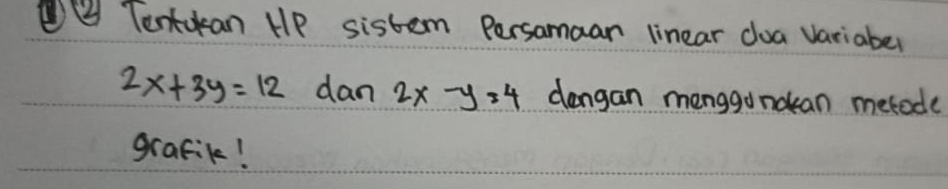 ② Tentukan HP sistem Persamaan linear dua Variabel
2x+3y=12 dan 2x-y=4 dengan menggunakan metode
grafik!